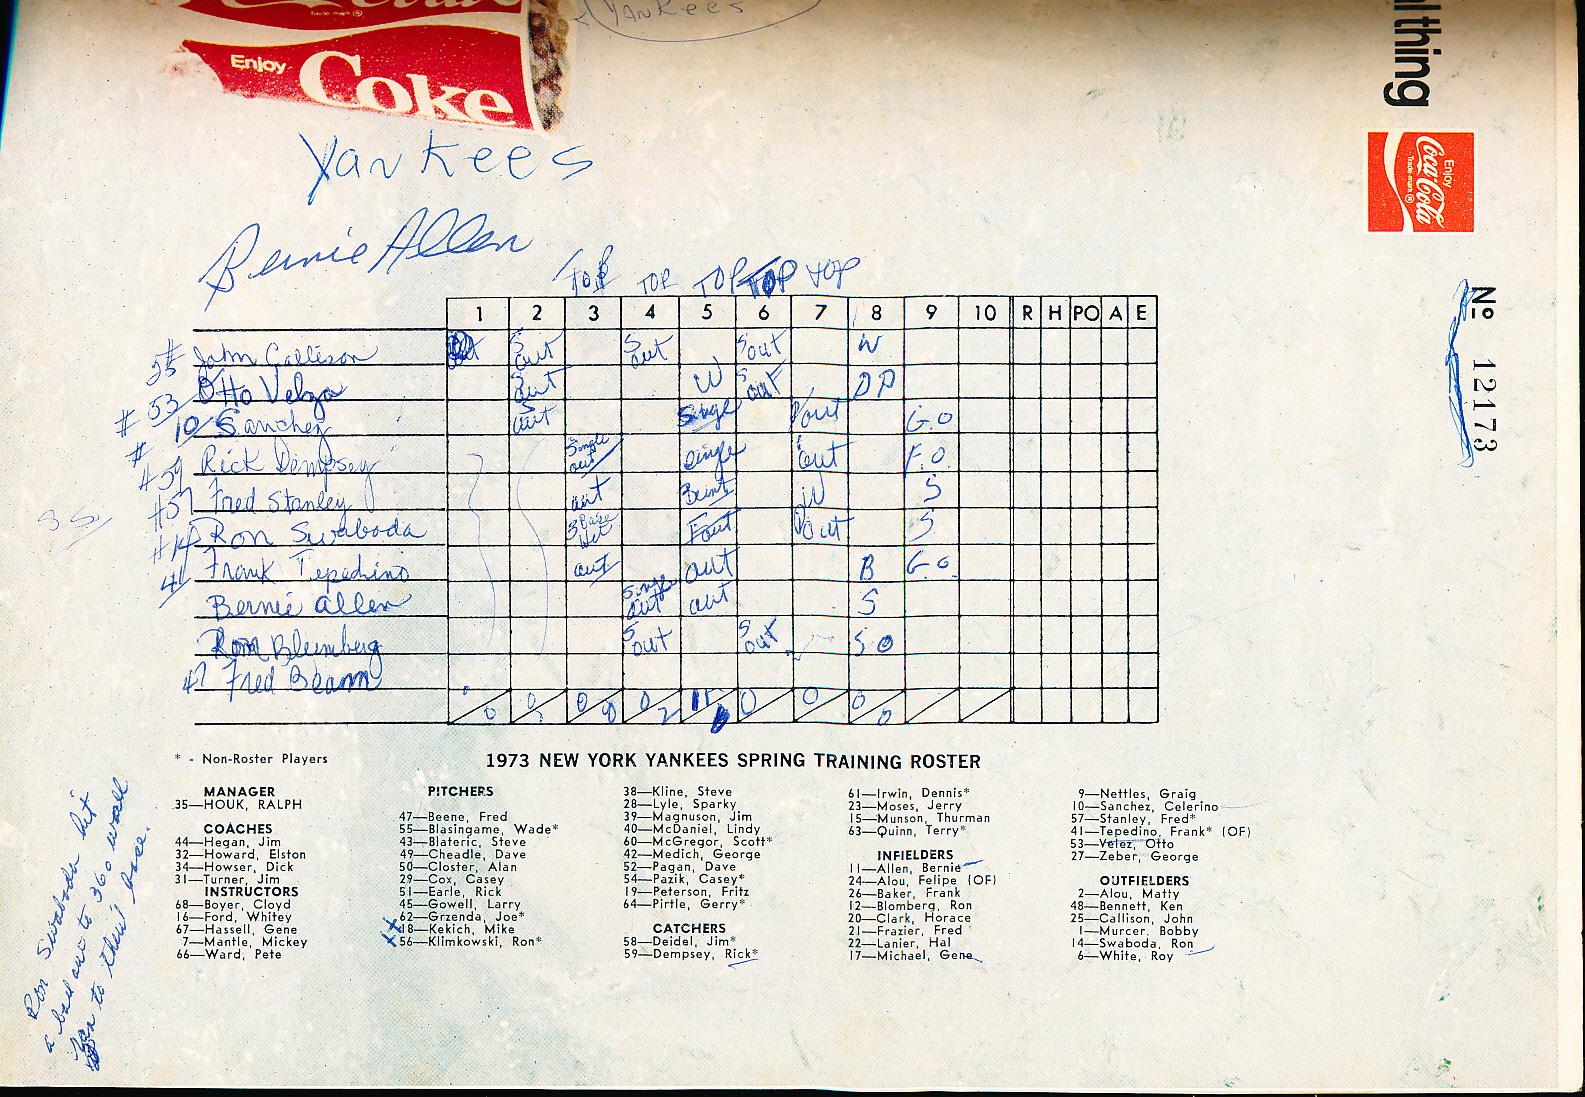 Yankees
Enjoy
Coke
Trade-mark ®
Yankees
Bernie Allen
TOP TOP TOP TOP TOP
1 2 3 4 5 6 7 8 9 10 R H PO A E
25# John Callison out S out S out S out W
# 53 Otto Velza out W S out DP
# 10 Sanchez S out Single Fout G.O
#59 Rick Dempsey Single out Single out F.O.
#57 Fred Stanley out Bunt W S
#14 Ron Swaboda 3 Base Hit Fout out S
41 Frank Tepedino out out B G.O.
Bernie Allen Single out out S
Ron Blumberg S out S out SO
47 Fred Beann
ss
* - Non-Roster Players
1973 NEW YORK YANKEES SPRING TRAINING ROSTER
MANAGER
35—HOUK, RALPH
COACHES
44—Hegan, Jim
32—Howard, Elston
34—Howser, Dick
31—Turner, Jim
INSTRUCTORS
68—Boyer, Cloyd
16—Ford, Whitey
67—Hassell, Gene
7—Mantle, Mickey
66—Ward, Pete
PITCHERS
47—Beene, Fred
55—Blasingame, Wade*
43—Blateric, Steve
49—Cheadle, Dave
50—Closter, Alan
29—Cox, Casey
51—Earle, Rick
45—Gowell, Larry
62—Grzenda, Joe*
18—Kekich, Mike
56—Klimkowski, Ron*
38—Kline, Steve
28—Lyle, Sparky
39—Magnuson, Jim
40—McDaniel, Lindy
60—McGregor, Scott*
42—Medich, George
52—Pagan, Dave
54—Pazik, Casey*
19—Peterson, Fritz
64—Pirtle, Gerry*
CATCHERS
58—Deidel, Jim*
59—Dempsey, Rick*
61—Irwin, Dennis*
23—Moses, Jerry
15—Munson, Thurman
63—Quinn, Terry*
INFIELDERS
11—Allen, Bernie
24—Alou, Felipe (OF)
26—Baker, Frank
12—Blomberg, Ron
20—Clark, Horace
21—Frazier, Fred
22—Lanier, Hal
17—Michael, Gene
9—Nettles, Graig
10—Sanchez, Celerino
57—Stanley, Fred*
41—Tepedino, Frank* (OF)
53—Velez, Otto
27—Zeber, George
OUTFIELDERS
2—Alou, Matty
48—Bennett, Ken
25—Callison, John
1—Murcer, Bobby
14—Swaboda, Ron
6—White, Roy
Ron Swaboda hit
a ball out to 360 wall
ran to third base.
thing
Enjoy
Coca-Cola
Trade-mark ®
No 12173